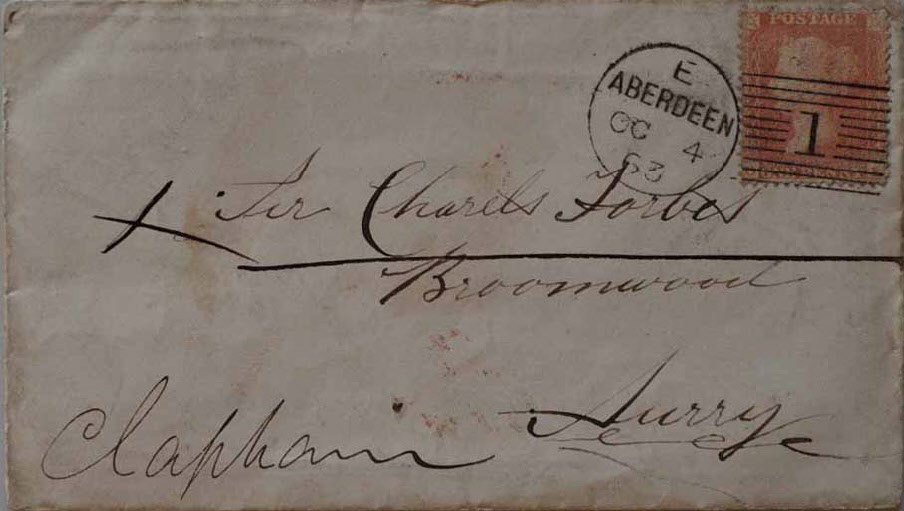 POSTAGE
E
ABERDEEN
OC 4
63
1
Sir Charels Forbes
Broomwood
Surry
Clapham